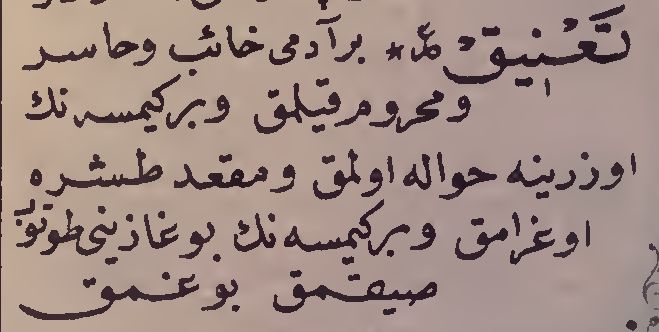 تَعْنِيقْ بر آدمى خائب وحاسر
ومحروم قيلمق وبركيمسه نك
اوزرينه حواله اولمق ومقعد طشره
اوغرامق وبركيمسه نك بوغازينى طوتوب
صيقمق بوغمق